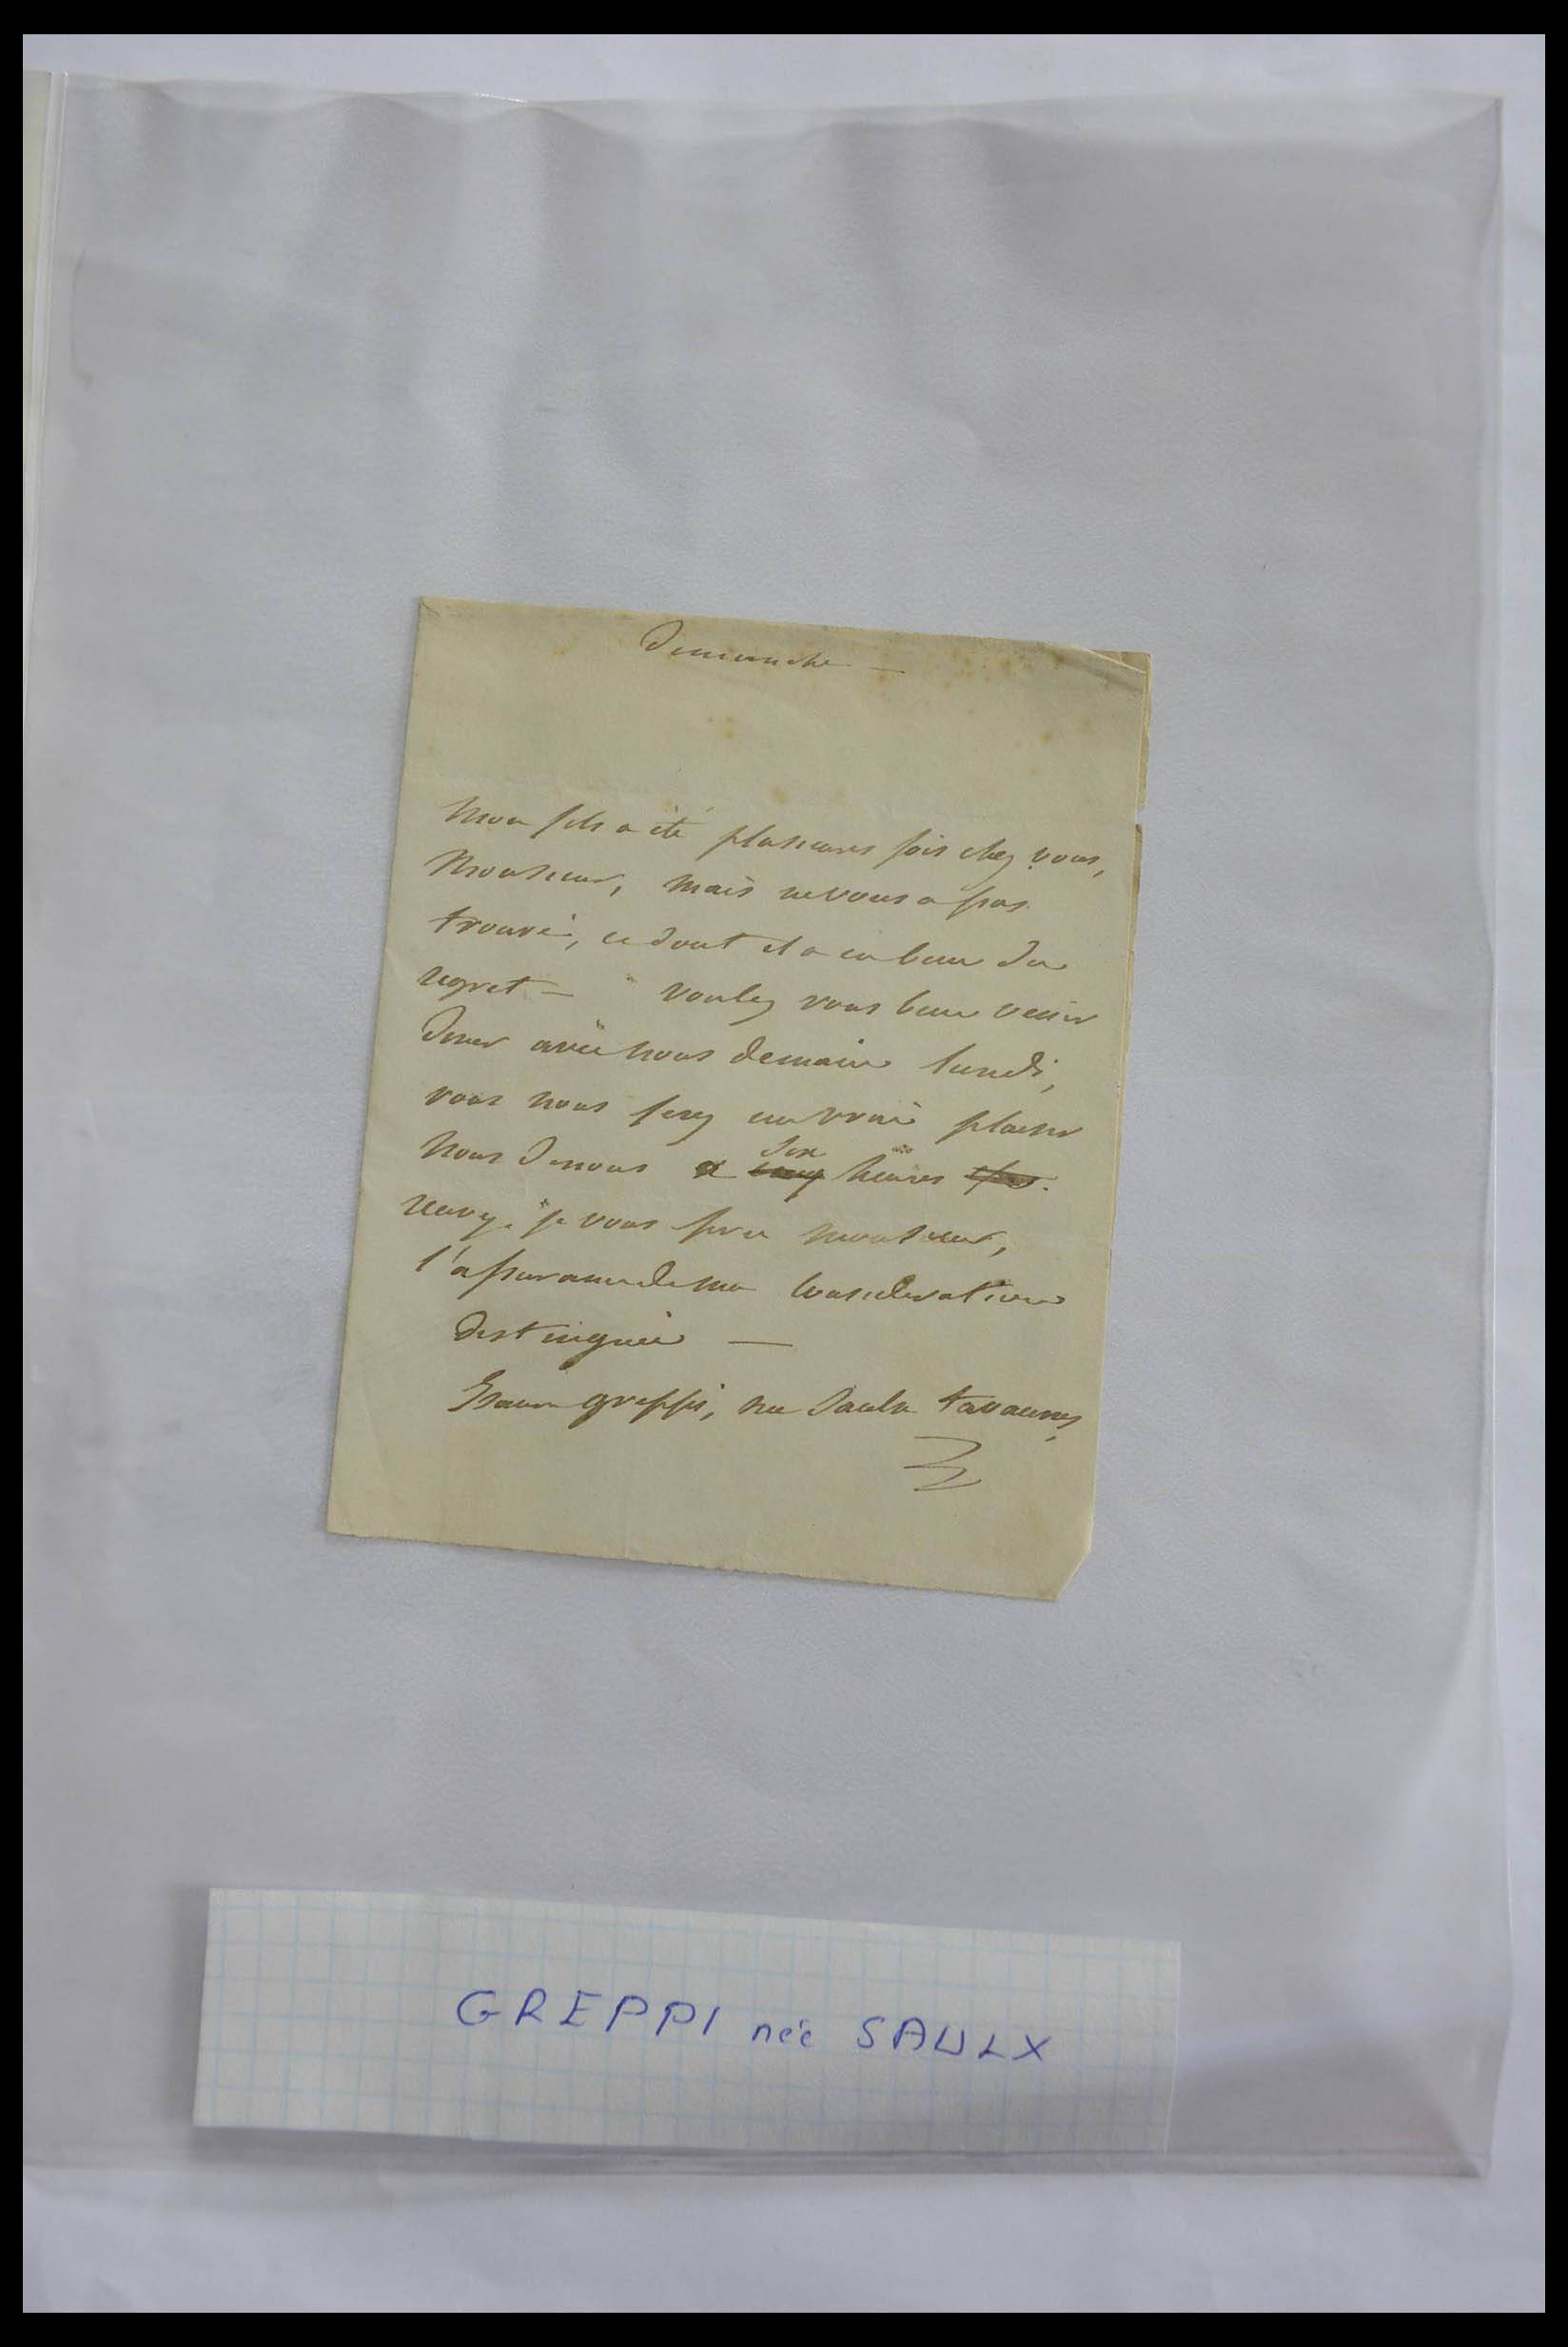 Dimanche —
Mon fils a été plusieurs fois chez vous,
Monsieur, mais ne vous a pas
trouvé, ce dont il a eu bien du
regret — voulez vous bien venir
diner avec nous demain lundi,
vous nous ferez un vrai plaisir
nous dinons a six heures
recevez, je vous prie monsieur,
l'assurance de ma consideration
distinguée —
greppi, née Saulx tavannes,
GREPPI née SAULX